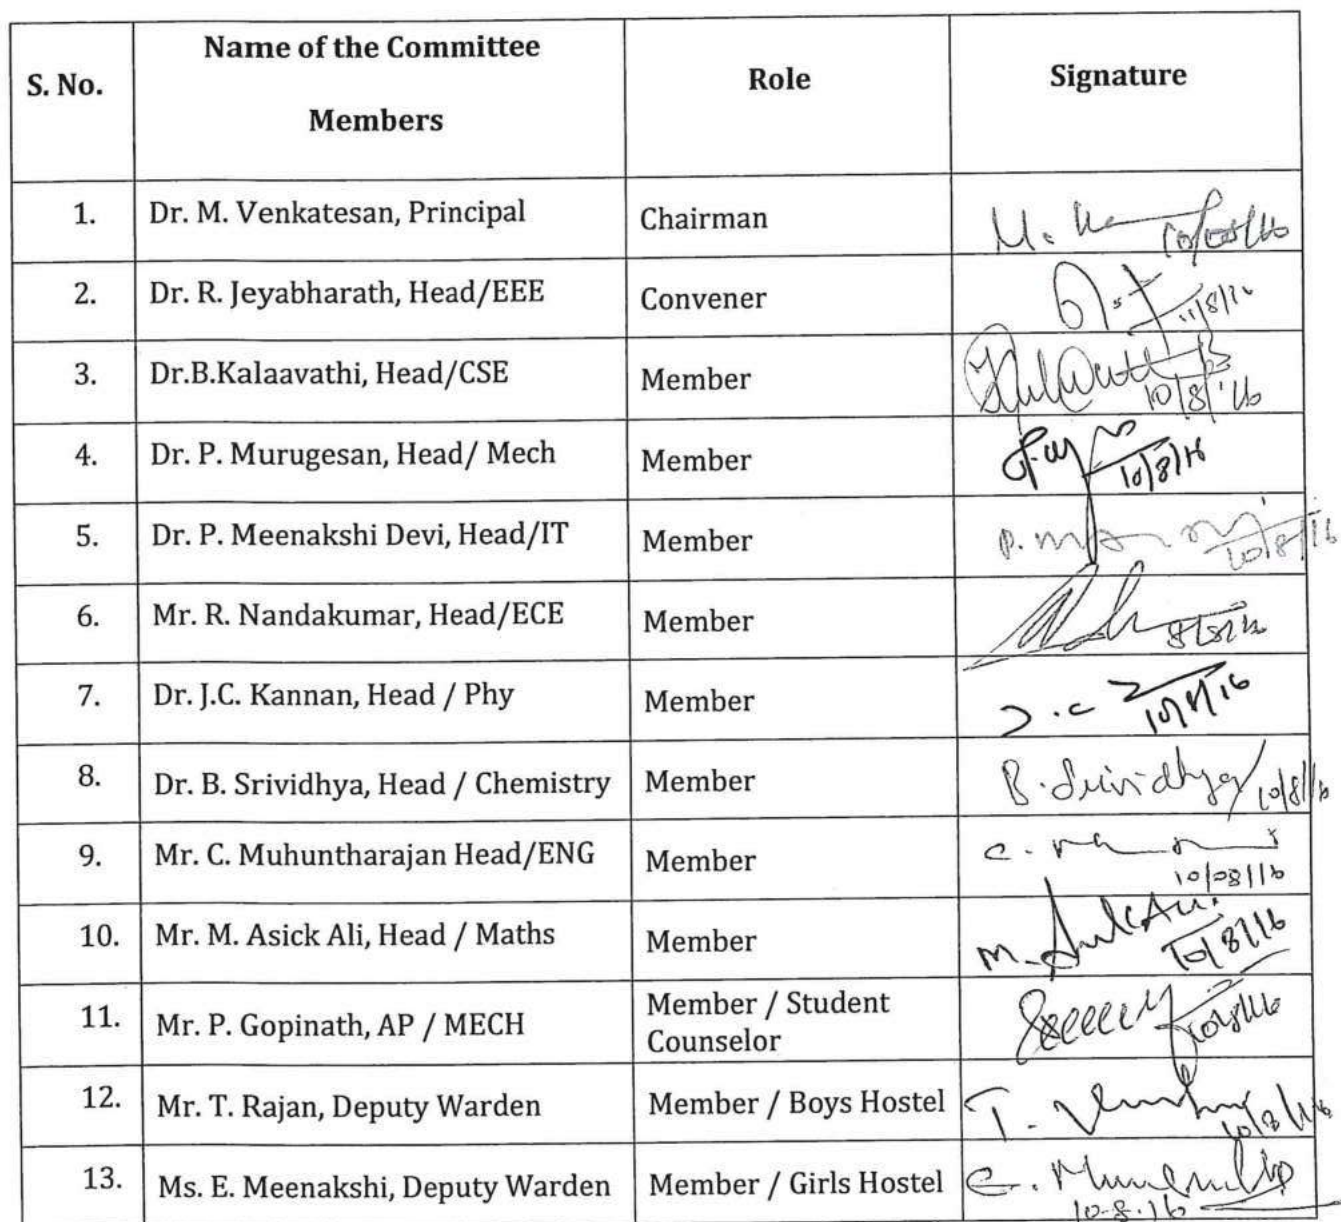 S. No. Name of the Committee Members Role Signature
1. Dr. M. Venkatesan, Principal Chairman
2. Dr. R. Jeyabharath, Head/EEE Convener 11/8/16
3. Dr.B.Kalaavathi, Head/CSE Member 10/8/16
4. Dr. P. Murugesan, Head/ Mech Member 10/8/16
5. Dr. P. Meenakshi Devi, Head/IT Member 10/8/16
6. Mr. R. Nandakumar, Head/ECE Member
7. Dr. J.C. Kannan, Head / Phy Member 10/8/16
8. Dr. B. Srividhya, Head / Chemistry Member B. Srividhya 10/8/16
9. Mr. C. Muhuntharajan Head/ENG Member 10/08/16
10. Mr. M. Asick Ali, Head / Maths Member 10/8/16
11. Mr. P. Gopinath, AP / MECH Member / Student
Counselor 10/8/16
12. Mr. T. Rajan, Deputy Warden Member / Boys Hostel 10/8/16
13. Ms. E. Meenakshi, Deputy Warden Member / Girls Hostel
10-8-16